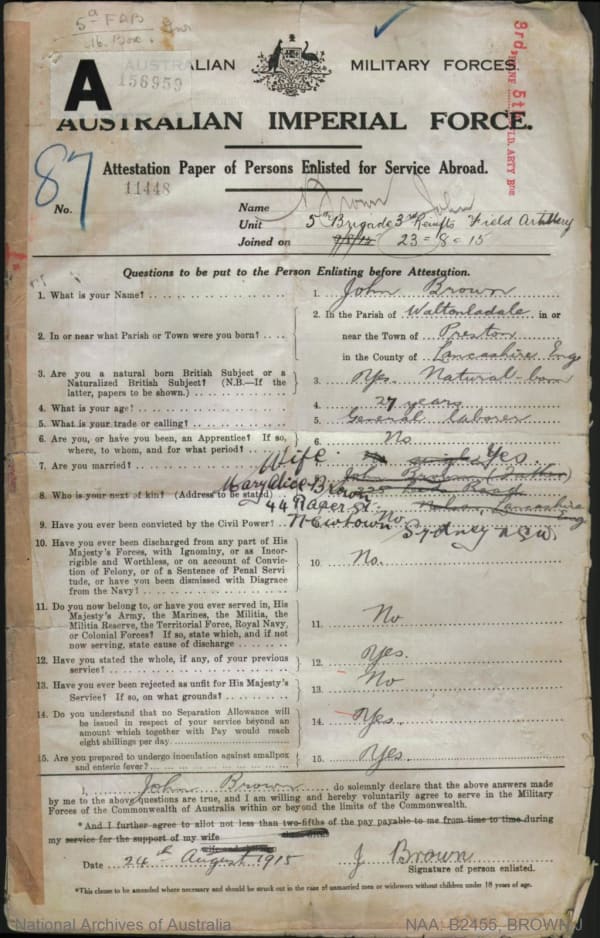 5th FAB
A
AUSTRALIAN MILITARY FORCES.
156959
3rd 5th FLD. ARTY BDE
AUSTRALIAN IMPERIAL FORCE.
87
Attestation Paper of Persons Enlisted for Service Abroad.
11448
No. Name Brown John
Unit 5th Brigade 3rd Reinfts Field Artillery
Joined on 23-8-15
Questions to be put to the Person Enlisting before Attestation.
1. What is your Name? 1. John Brown
2. In or near what Parish or Town were you born? 2. In the Parish of Waltonladale in or
near the Town of Preston
in the County of Lancashire Eng
3. Are you a natural born British Subject or a
Naturalized British Subject? (N.B.—If the
latter, papers to be shown.) 3. Yes. Natural-born
4. What is your age? 4. 27 years
5. What is your trade or calling? 5. General laborer
6. Are you, or have you been, an Apprentice? If so,
where, to whom, and for what period? 6. No.
7. Are you married? 7. No single Yes.
Wife.
8. Who is your next of kin? (Address to be stated) 8. John Brown (Father)
Mary Alice Brown Road
44 Raper St Nelson, Lancashire Eng
Newtown Sydney NSW.
9. Have you ever been convicted by the Civil Power? 9. No
10. Have you ever been discharged from any part of His
Majesty's Forces, with Ignominy, or as Incor-
rigible and Worthless, or on account of Convic-
tion of Felony, or of a Sentence of Penal Servi-
tude, or have you been dismissed with Disgrace
from the Navy? 10. No.
11. Do you now belong to, or have you ever served in, His
Majesty's Army, the Marines, the Militia, the
Militia Reserve, the Territorial Force, Royal Navy,
or Colonial Forces? If so, state which, and if not
now serving, state cause of discharge 11. No
12. Have you stated the whole, if any, of your previous
service? 12. Yes.
13. Have you ever been rejected as unfit for His Majesty's
Service? If so, on what grounds? 13. No
14. Do you understand that no Separation Allowance will
be issued in respect of your service beyond an
amount which together with Pay would reach
eight shillings per day. 14. Yes.
15. Are you prepared to undergo inoculation against smallpox
and enteric fever? 15. Yes.
I, John Brown do solemnly declare that the above answers made
by me to the above questions are true, and I am willing and hereby voluntarily agree to serve in the Military
Forces of the Commonwealth of Australia within or beyond the limits of the Commonwealth.
*And I further agree to allot not less than two-fifths of the pay payable to me from time to time during
my service for the support of my wife
Date 24th August 1915 J Brown
Signature of person enlisted.
*This clause to be amended where necessary and should be struck out in the case of unmarried men or widowers without children under 18 years of age.
National Archives of Australia NAA: B2455, BROWN J